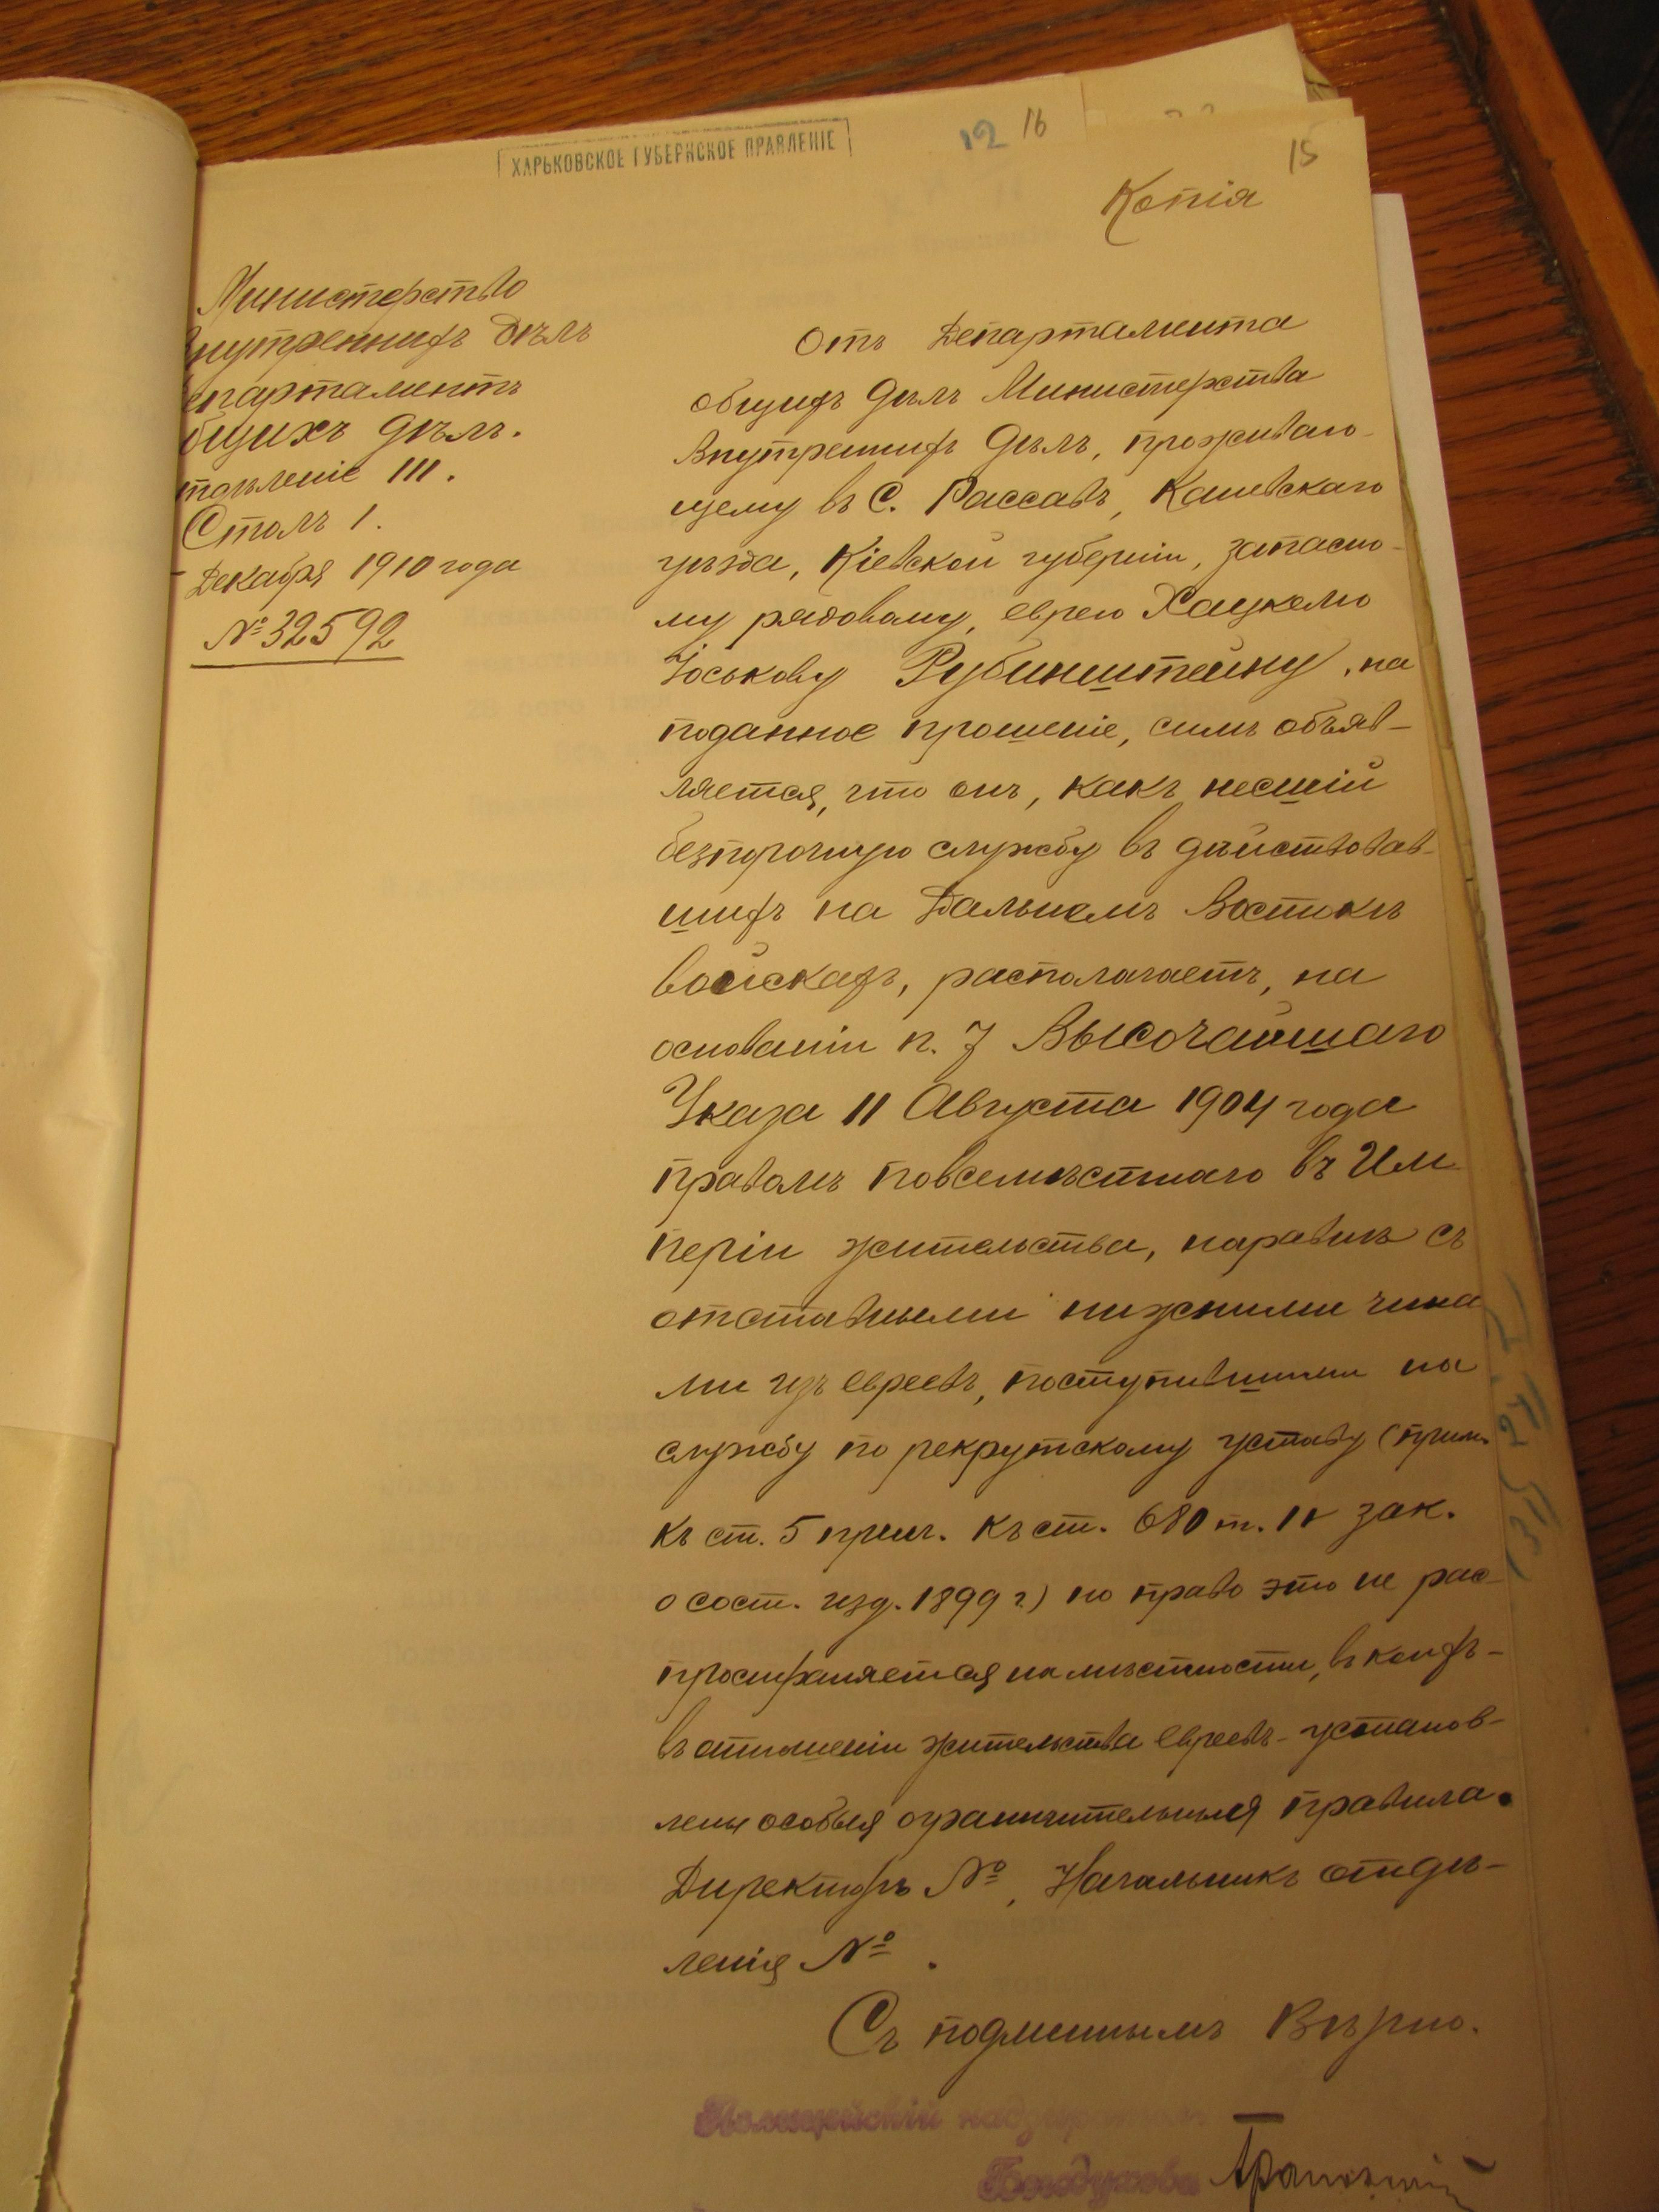 ХАРЬКОВСКОЕ ГУБЕРНСКОЕ ПРАВЛЕНІЕ
12 16
15
Копія
Министерство
внутреннихъ дѣлъ
епартаментъ
бщихъ дѣлъ.
тдѣленіе III.
Столъ 1.
Декабря 1910 года
№ 32592
Отъ Департамента
общихъ дѣлъ Министерства
Внутреннихъ Дѣлъ, проживаю-
щему въ С. Рассавѣ, Каневскаго
уѣзда, Кіевской губерніи, запасно-
му рядовому, еврею Хацкелю
Іоськову Рубинштейну, на
поданное прошеніе, симъ объяв-
ляется, что онъ, какъ несшій
безпорочную службу въ дѣйствовав-
шихъ на Дальнемъ Востокѣ
войскахъ, располагаетъ, на
основаніи п. 7 Высочайшаго
Указа 11 Августа 1904 года
правомъ повсемѣстнаго въ Им
періи жительства, наравнѣ съ
отставными нижними чина
ми изъ евреевъ, поступившими на
службу по рекрутскому уставу (прим.
къ ст. 5 прил. къ ст. 680 т. IX зак.
о сост. изд. 1899 г.) но право это не рас-
пространяется на мѣстности, въ коихъ-
въ отношеніи жительства евреевъ- установ-
лены особыя ограничительныя правила.
Директоръ №, Начальникъ отдѣ-
ленія № .
Съ подлиннымъ Вѣрно.
Полицейскій надзиратель
Богодухова